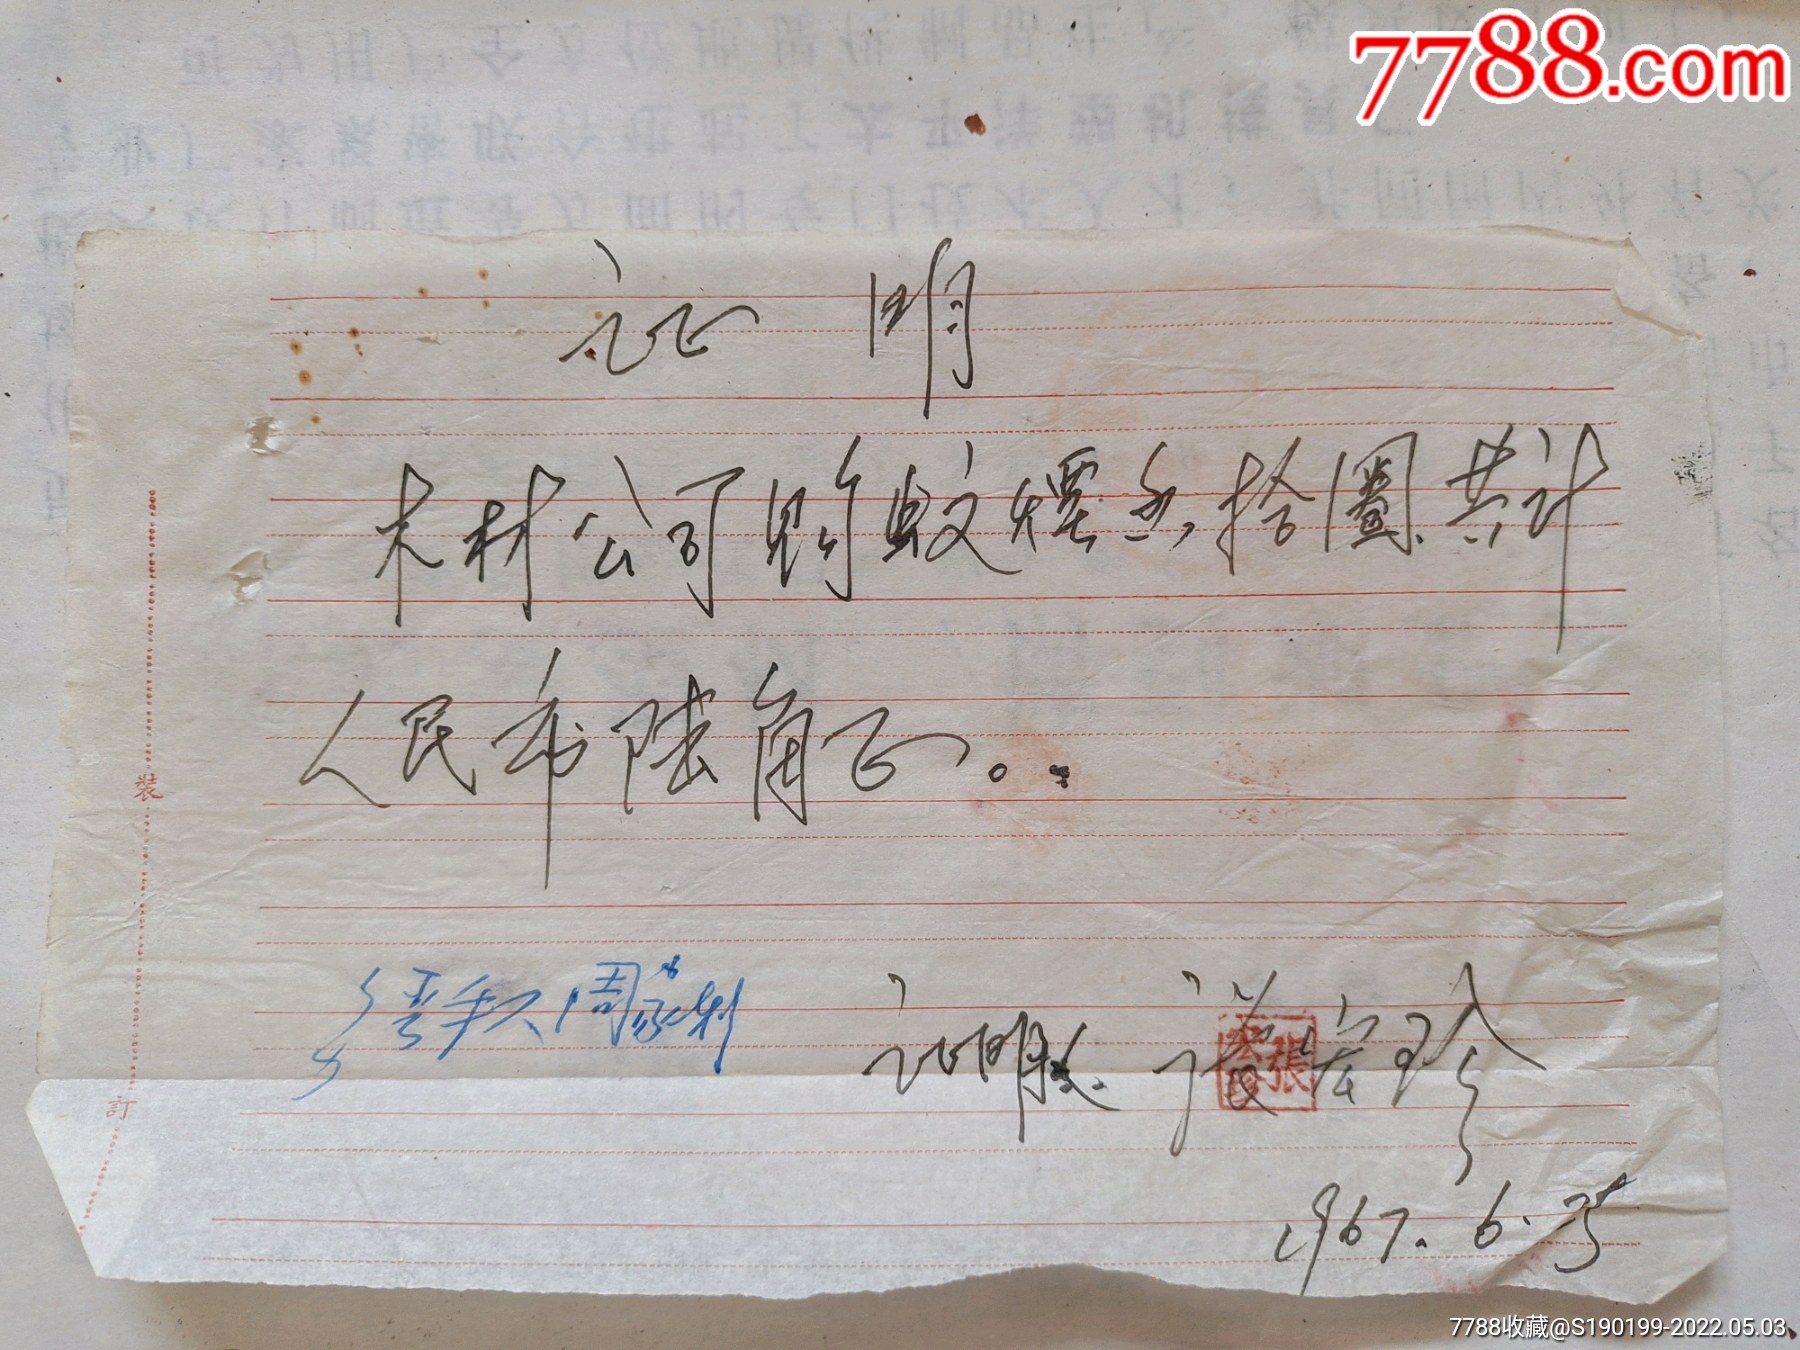 7788.com
证明
木材公司购蚊烟香拾圈共计
人民币陆角正。
经手人周
证明 张宏玲
張
1967.6.25
装
订
7788收藏@S190199-2022.05.03